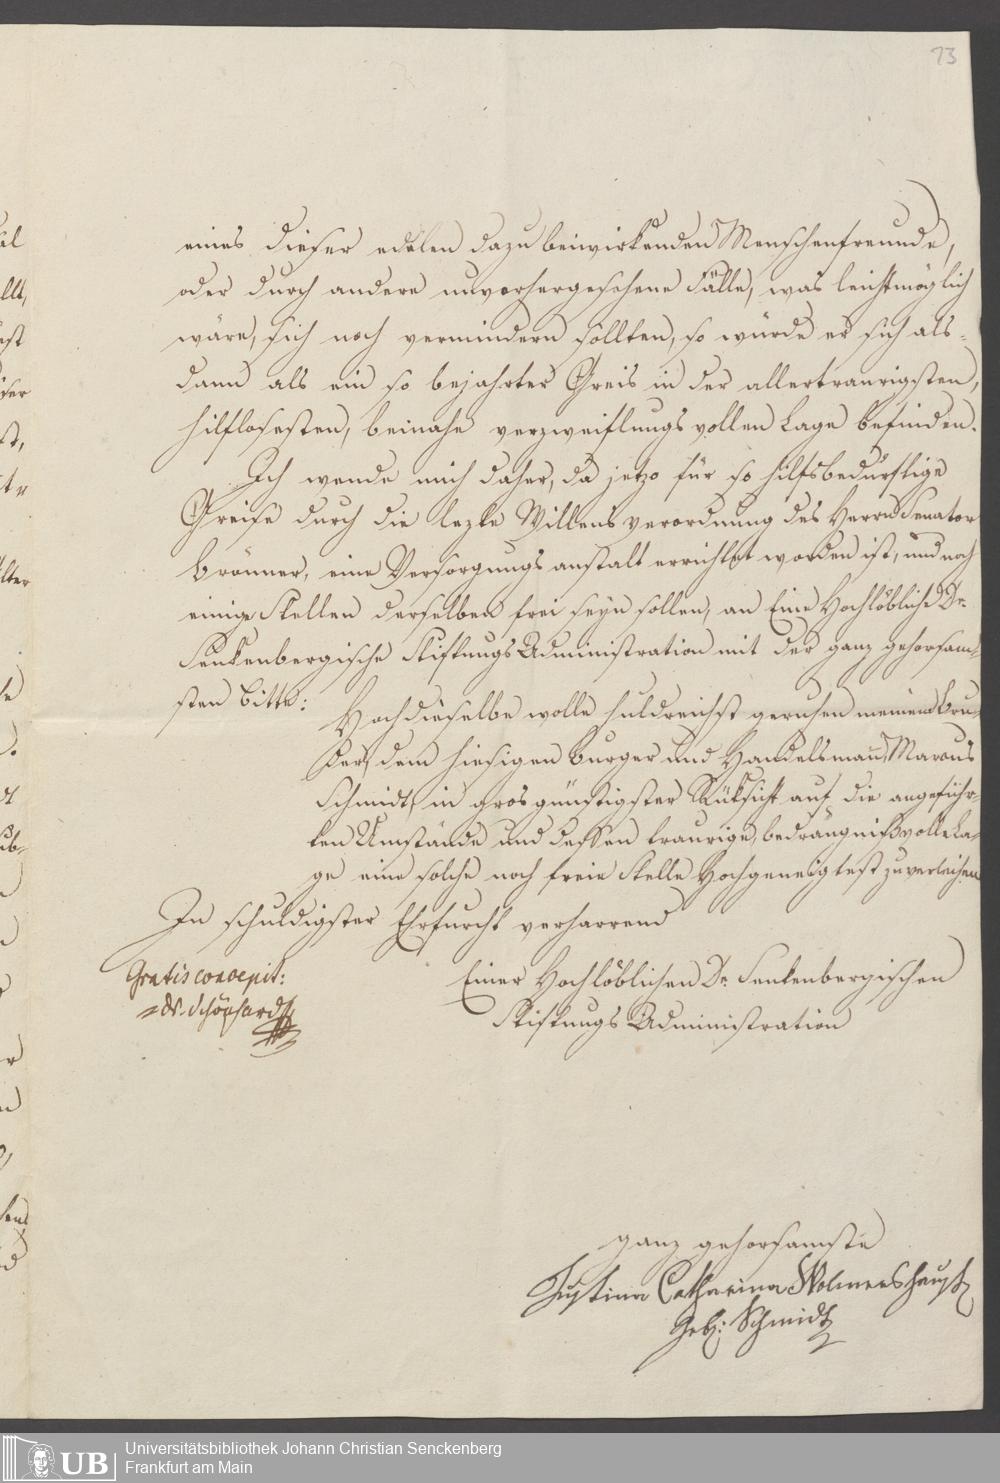 73
eines dieser edelen dazu beiwirkenden Menschenfreunde,
oder durch andere unvorhergesehene Fälle, was leicht möglich
wäre, sich noch vermindern sollten, so würde er sich als-
dann als ein so bejahrter Greis in der allertraurigsten,
hilflosesten, beinahe verzweiflungsvollen Lage befinden.
Ich wende mich daher, da jetzo für so hilfsbedürftige
Greise durch die lezte Willensverordnung des Herrn Senator
Brönner, eine Versorgungsanstalt errichtet worden ist, und noch
einige Stellen derselben frei seyn sollen, an Eine Hochlöbliche Dr.
Senkenbergische Stiftungs Administration mit der ganz gehorsam-
sten Bitte:
Hochdieselbe wolle huldreichst geruhen meinem Bru-
der, dem hiesigen Burger und Handelsmann, Marcus
Schmidt, in grosgünstigster Rüksicht auf die angeführ-
ten Umstände und dessen traurige, bedrängnißvolle La-
ge eine solche noch freie Stelle Hochgeneigtest zu verleihen
In schuldigster Ehrfurcht verharrend
Gratis concepit:
Dr. Schöphardt
Einer Hochlöblichen Dr. Senkenbergischen
Stiftungs Administration
ganz gehorsamste
Justina Catharina
geb: Schmidt
UB
Universitätsbibliothek Johann Christian Senckenberg
Frankfurt am Main